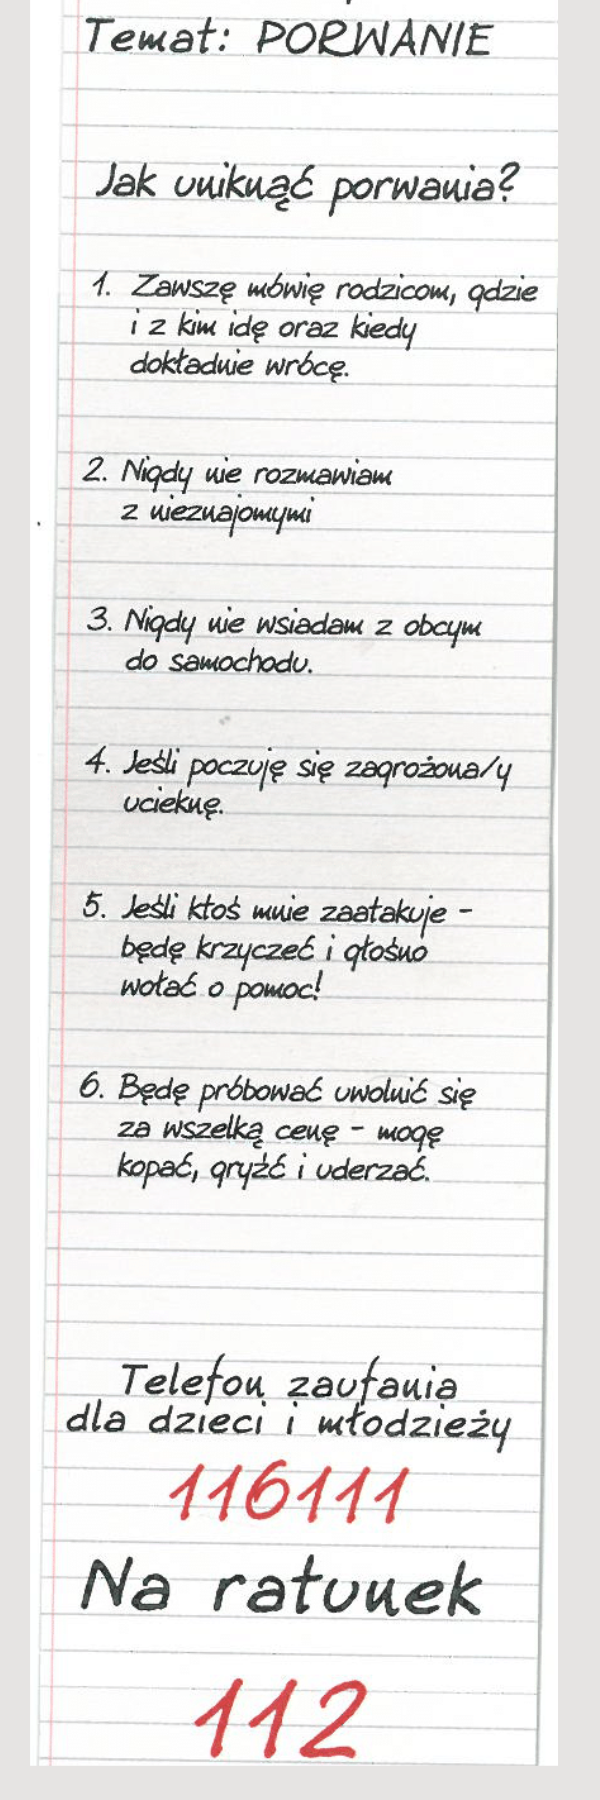 Temat: PORWANIE
Jak uniknąć porwania?
1. Zawszę mówię rodzicom, gdzie
i z kim idę oraz kiedy
dokładnie wrócę.
2. Nigdy nie rozmawiam
z nieznajomymi
3. Nigdy nie wsiadam z obcym
do samochodu.
4. Jeśli poczuję się zagrożona/y
ucieknę.
5. Jeśli ktoś mnie zaatakuje -
będę krzyczeć i głośno
wołać o pomoc!
6. Będę próbować uwolnić się
za wszelką cenę - mogę
kopać, gryźć i uderzać.
Telefon zaufania
dla dzieci i młodzieży
116111
Na ratunek
112